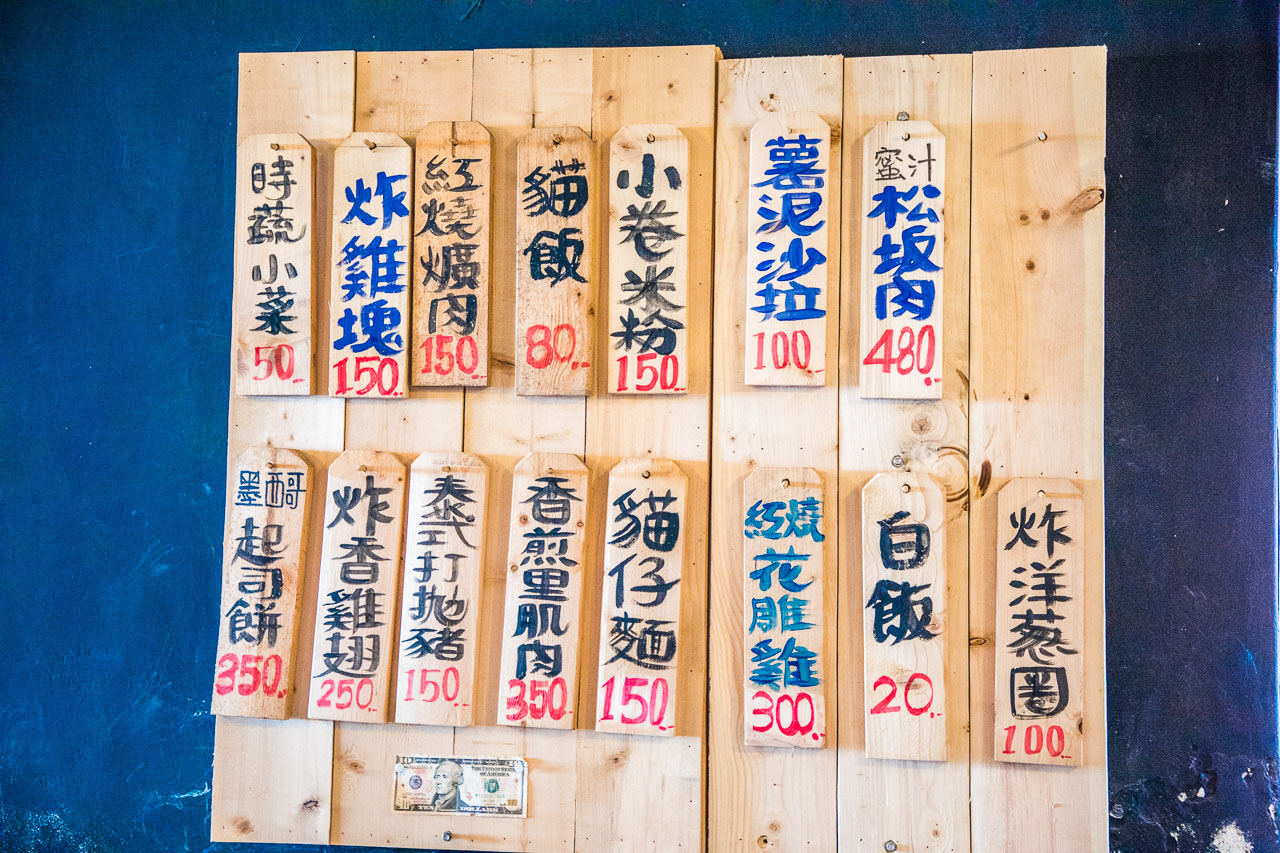 時蔬小菜
50.
炸雞塊
150.
紅燒爌肉
150.
貓飯
80.
小卷米粉
150.
薯泥沙拉
100.
蜜汁
松坂肉
480.
墨西哥
起司餅
350.
炸香雞翅
250.
泰式打拋豬
150.
香煎里肌肉
350.
貓仔麵
150.
紅燒
花雕雞
300.
白飯
20.
炸洋蔥圈
100.
10
THE UNITED STATES
OF AMERICA
TEN DOLLARS